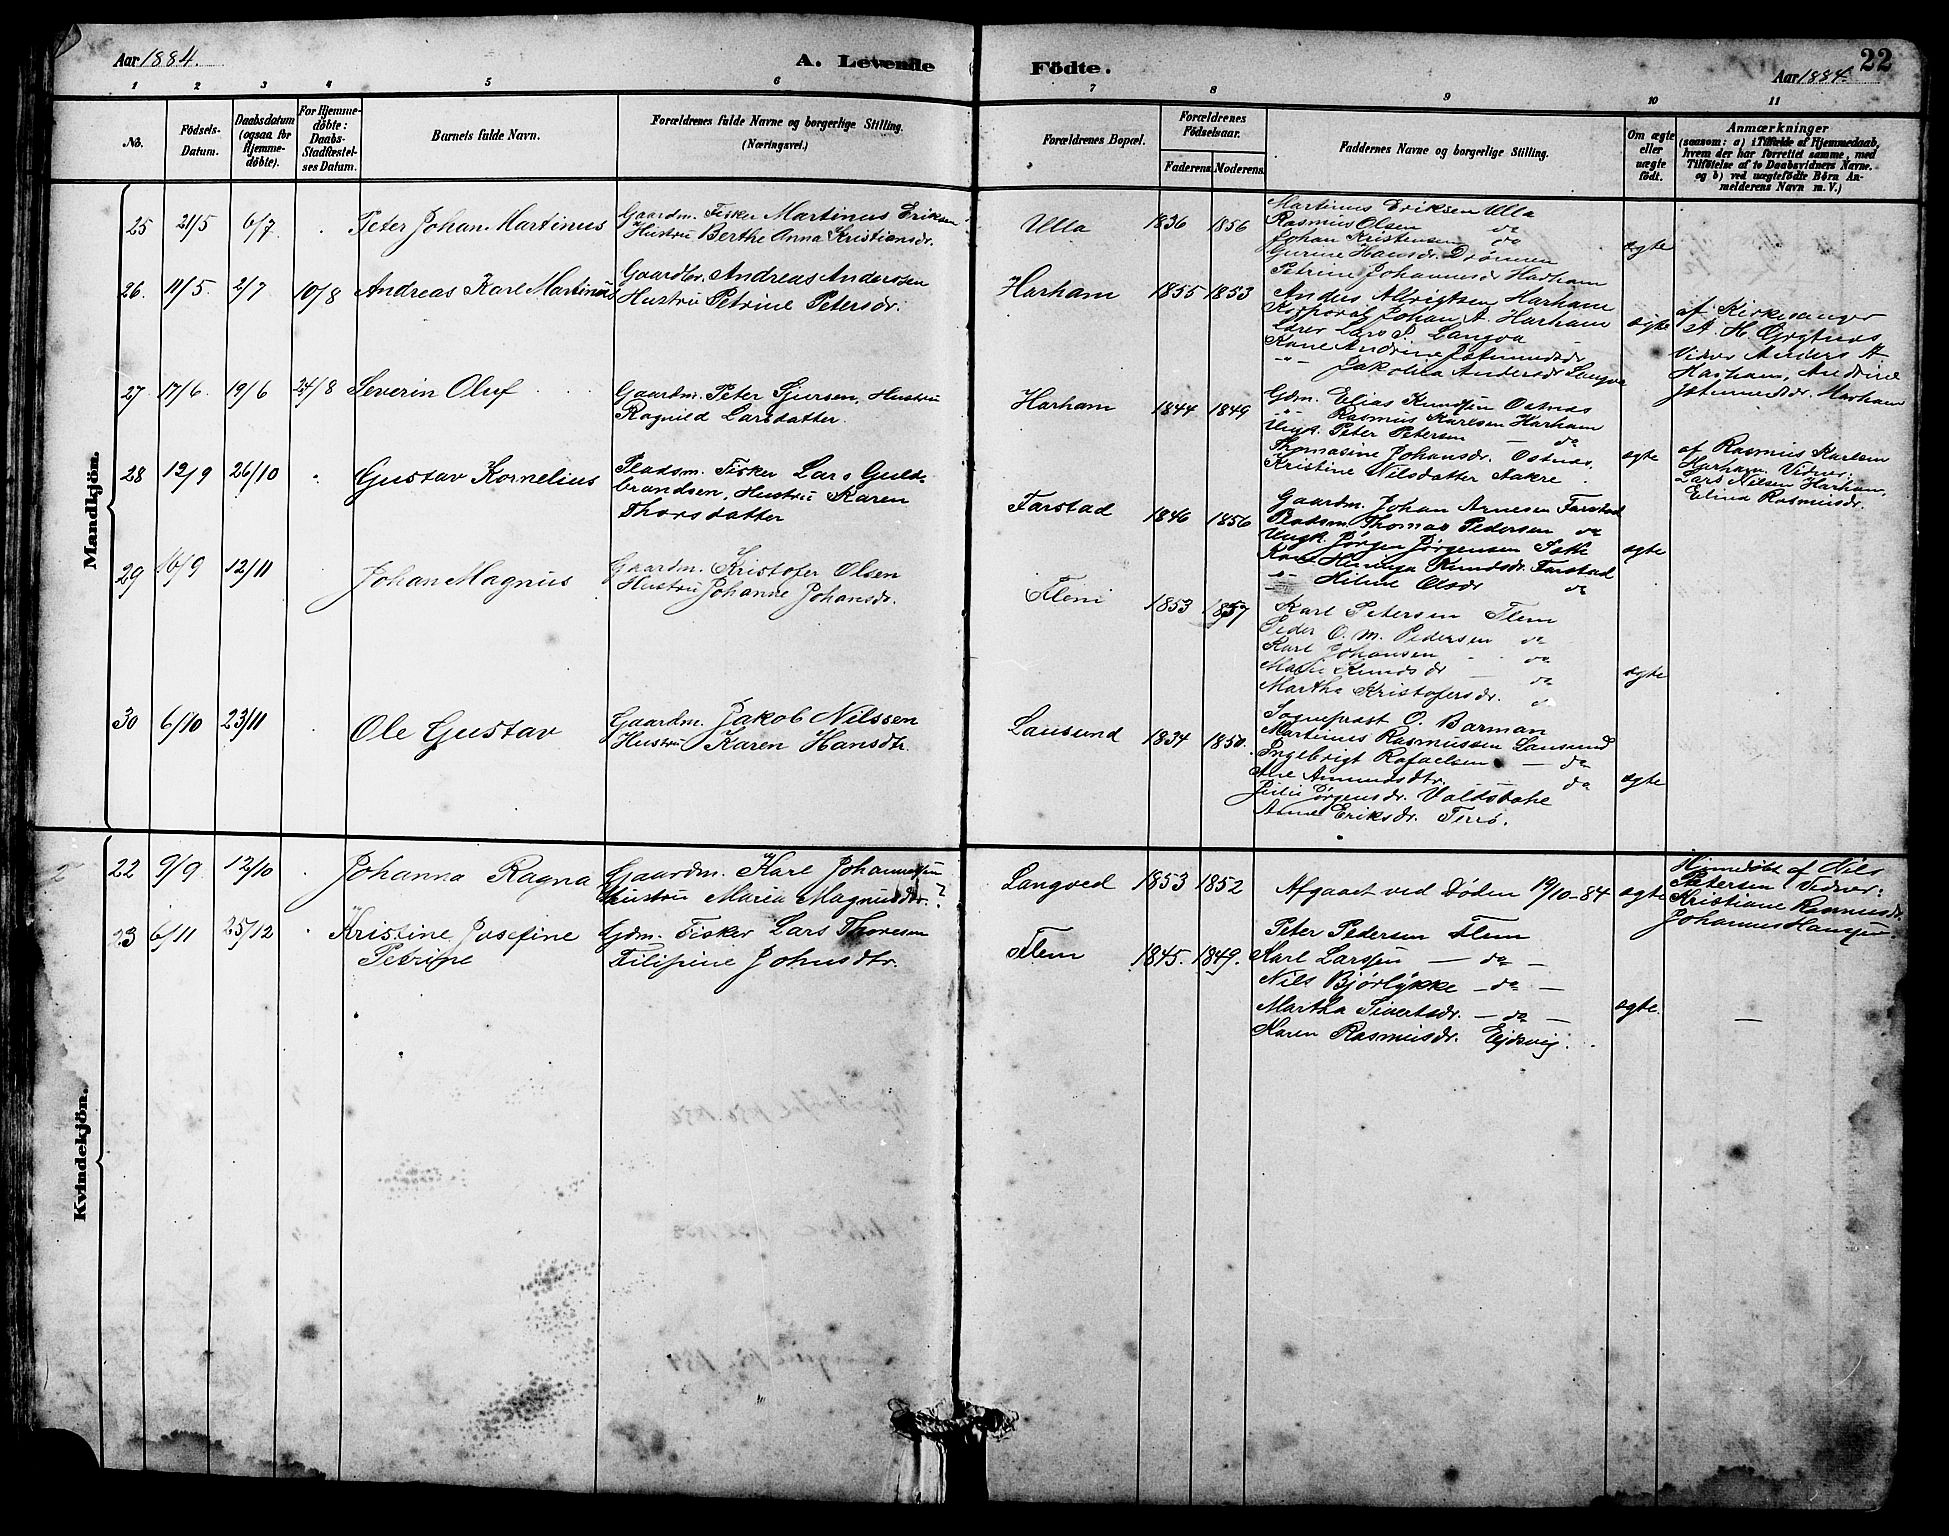 Aar 1884.
A. Levende Födte.
22
Aar 1884.
1 2 3 4 5 6 7 8 9 10 11
No.
Födsels-Datum.
Daabsdatum (ogsaa for Hjemmedöbte).
For Hjemmedöbte: Daabs-Stadfæstelses Datum.
Barnets fulde Navn.
Forældrenes fulde Navne og borgerlige Stilling.
(Næringsvei.)
Forældrenes Bopæl.
Forældrenes Födselsaar.
Faderens. Moderens.
Faddernes Navne og borgerlige Stilling.
Om ægte eller uægte födt.
Anmærkninger
(saasom: a) i Tilfælde af Hjemmedaab,
hvem der har forrettet samme, med
Tilföielse af to Daabsvidners Navne.
og b) ved uægtefödte Börn Anmelderens Navn m. V.)
Mandkjön.
25 21/5 6/7 Peter Johan Martinus
Gaardm. Fisker Martinus Eriksen
Hustru Berthe Anna Kristiansdr.
Ulla 1836 1856
Martinus Eriksen Ulla
Rasmus Olsen do
Johan Kristensen do
Gurine Hansdr. Drönnen
Petrine Johannesdr Harham
ægte
26. 11/5. 2/7 10/8 Andreas Karl Martinus
Gaardbr. Andreas Anderssen
Hustru Petrine Petersdr.
Harham 1855 1853
Anders Allrigtsen Harham
Korporal Johan A. Harham
Lærer Lars P. Langva
Kone Andrine Jetmundsdr
-"- Jakobia Andersdr Langva
ægte
af Kirkesanger
A. H. Grytnes
Vidner Anders A.
Harham, Andrine
Jetmundsdr. Harham
27 17/6 19/6 24/8 Severin Oluf
Gaardm. Peter Sjursen, Hustru
Ragnild Larsdatter.
Harham 1844 1849
Gdm. Elias Knudsen Ostnes
-"- Rasmus Karlsen Harham
Ungk. Peter Petersen — do
Thomasine Johansdr. Ostnes
Kristine Nilsdatter Aakre
ægte
af Rasmus Karlsen
Harham. Vidner:
Lars Nilsen Harham,
Elina Rasmusdr.
28 12/9 26/10 Gustav Kornelius
Pladsm. Fisker Lars Guldbrandsen, Hustru Karen
Thorsdatter
Farstad 1846 1856
Gaardm. Johan Arnesen Farstad
Pladsm. Thomas Pedersen do
Ungk. Jørgen Jørgensen
Knudsdr. Farstad
-"- Olsdr do
ægte
29 16/9 12/11 Johan Magnus
Gaardm. Kristofer Olsen
Hustru Johanne Johansdr.
Flem 1853 1857
Karl Petersen Flem
Peder O. M. Pedersen do
Karl Johansen do
Marie Knudsdr do
Martha Kristofersdr. do
ægte
30 6/10 23/11 Ole Gustav
Gaardm. Jakob Nilssen
Hustru Karen Hansdtr.
Lausund 1834 1850.
Sogneprest O. Barman
Martinus Rasmussen Lausund
Ingebrigt Rafaelsen — do
Ane Amundsdtr. — do
Julie Jørgensdr. Valdsbake
Anne Eriksdr.
ægte
Kvindekjön.
22 9/9 12/10 Johanna Ragna
Gaardm. Karl Johannesen
Hustru Maria Magnusdtr.?
Langved 1853 1852
Afgaaet ved Döden 19/10-84
ægte
Hjemmedøbt af Nils
Petersen Vidner:
Kristiane Rasmusdr.
Johannes Hansen.
23 6/11 25/12 Kristine Josefine
Petrine
Gdm. Fisker Lars Thoresen
Filipine Johnsdtr.
Flem 1845. 1849.
Peter Pedersen Flem
Karl Larsen — do —
Nils Bjørlykke — do —
Martha Sivertsdr. — do —
Karen Rasmusdr. Ejdsvig.
ægte. —